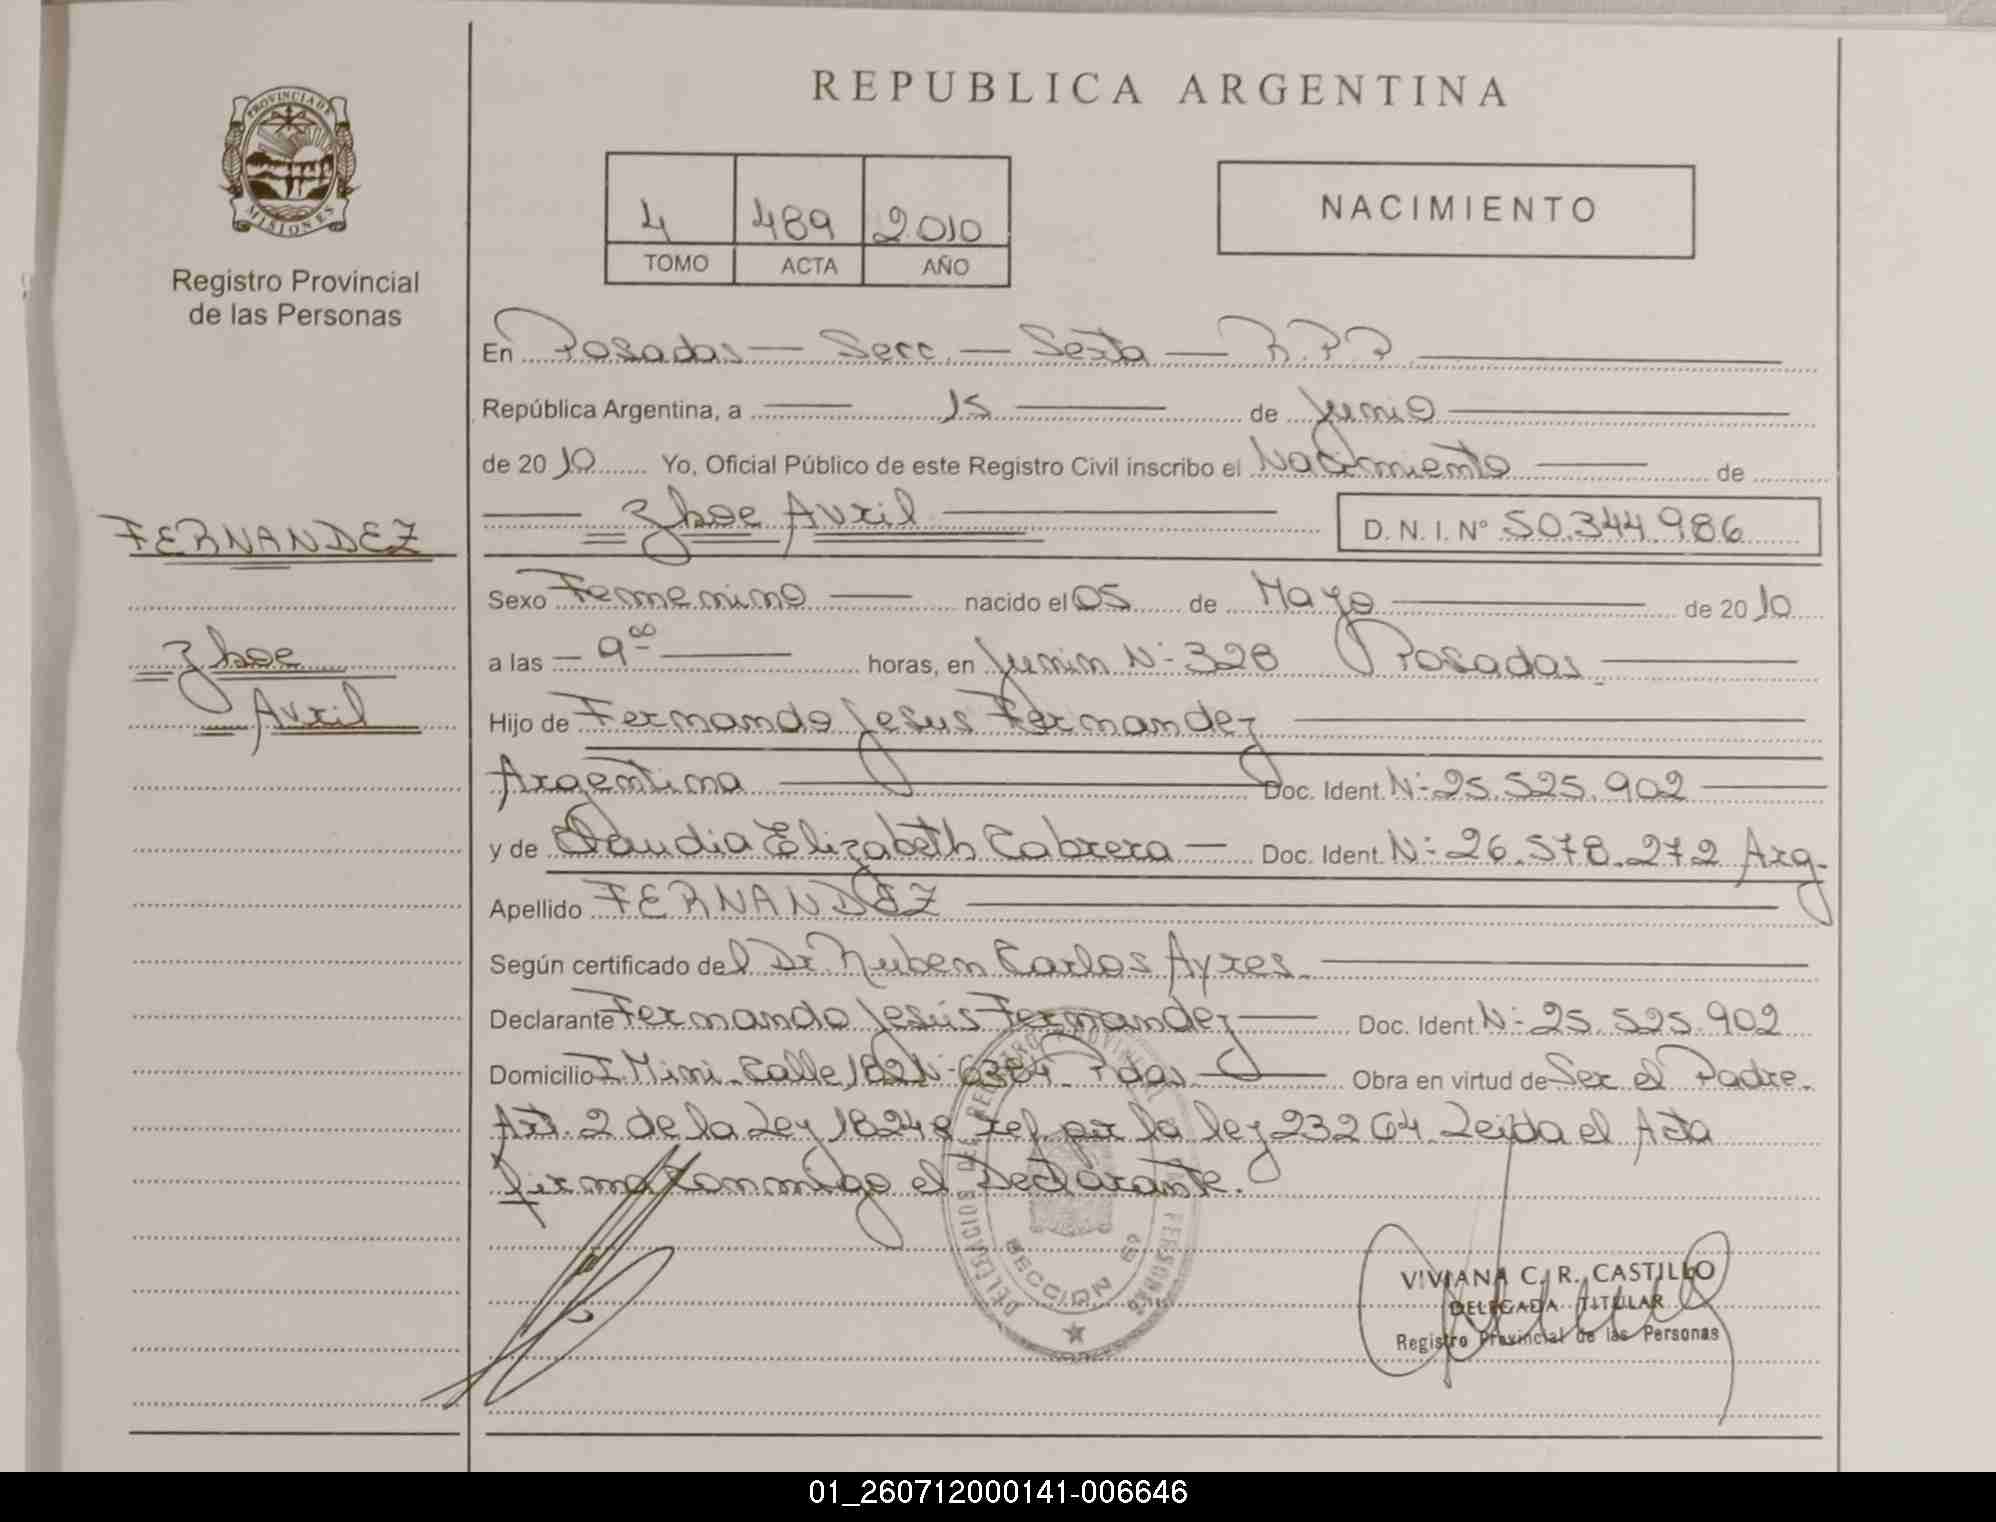 REPUBLICA ARGENTINA
PROVINCIA DE
MISIONES
Registro Provincial
de las Personas
4 489 2010
TOMO ACTA AÑO
NACIMIENTO
En Posadas — Secc. — Sexta — R.P.P
República Argentina, a — 15 — de Junio
de 2010 Yo, Oficial Público de este Registro Civil inscribo el Nacimiento — de
Zhoe Avril D. N. I. N° 50.344.986
FERNANDEZ
Sexo Femenino — nacido el 05 de Mayo — de 2010
Zhoe
Avril
a las — 9⁰⁰ — horas, en Junin N° 328 Posadas
Hijo de Fernando Jesus Fernandez
Argentina — Doc. Ident. N° 25.525.902
y de Claudia Elizabeth Cabrera — Doc. Ident. N° 26.578.272 Arg.
Apellido FERNANDEZ
Según certificado del Dr Ruben Carlos Ayres.
Declarante Fernando Jesús Fernandez — Doc. Ident. N° 25.525.902
Domicilio I. Mini. Calle 182 N° 6384 Pdas — Obra en virtud de Ser el Padre.
Art. 2 de la Ley 18248 ref. por la ley 23264. Leida el Acta
firma conmigo el Declarante.
SECCION 6ª
VIVIANA C. R. CASTILLO
DELEGADA TITULAR
Registro Provincial de las Personas
01_260712000141-006646